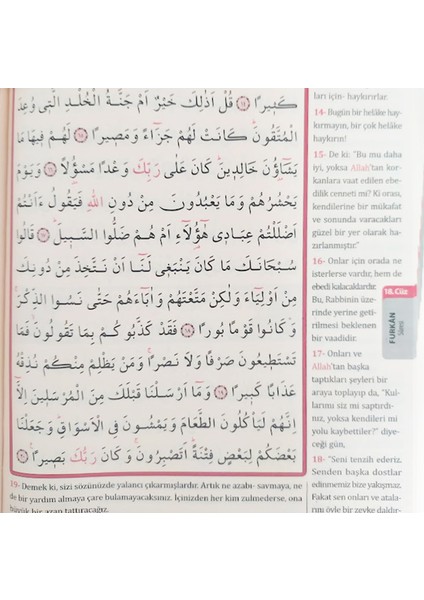 كَثٖيرًا ﴿١٤﴾ قُلْ اَذٰلِكَ خَيْرٌ اَمْ جَنَّةُ الْخُلْدِ الَّتٖي وُعِدَ
الْمُتَّقُونَؕ كَانَتْ لَهُمْ جَزَٓاءً وَمَصٖيرًا ﴿١٥﴾ لَهُمْ فٖيهَا مَا
يَشَٓاؤُ۫نَ خَالِدٖينَؕ كَانَ عَلٰى رَبِّكَ وَعْدًا مَسْؤُ۫لًا ﴿١٦﴾ وَيَوْمَ
يَحْشُرُهُمْ وَمَا يَعْبُدُونَ مِنْ دُونِ اللّٰهِ فَيَقُولُ ءَاَنْتُمْ
اَضْلَلْتُمْ عِبَادٖي هٰٓؤُ۬لَٓاءِ اَمْ هُمْ ضَلُّوا السَّبٖيلَؕ ﴿١٧﴾ قَالُوا
سُبْحَانَكَ مَا كَانَ يَنْبَغٖي لَنَٓا اَنْ نَتَّخِذَ مِنْ دُونِكَ
مِنْ اَوْلِيَٓاءَ وَلٰكِنْ مَتَّعْتَهُمْ وَاٰبَٓاءَهُمْ حَتّٰى نَسُوا الذِّكْرَۚ
وَكَانُوا قَوْمًا بُورًا ﴿١٨﴾ فَقَدْ كَذَّبُوكُمْ بِمَا تَقُولُونَۙ فَمَا
تَسْتَطٖيعُونَ صَرْفًا وَلَا نَصْرًاۚ وَمَنْ يَظْلِمْ مِنْكُمْ نُذِقْهُ
عَذَابًا كَبٖيرًا ﴿١٩﴾ وَمَٓا اَرْسَلْنَا قَبْلَكَ مِنَ الْمُرْسَلٖينَ اِلَّٓا
اِنَّهُمْ لَيَأْكُلُونَ الطَّعَامَ وَيَمْشُونَ فِي الْاَسْوَاقِؕ وَجَعَلْنَا
بَعْضَكُمْ لِبَعْضٍ فِتْنَةًؕ اَتَصْبِرُونَۚ وَكَانَ رَبُّكَ بَصٖيرًا
19- Demek ki, sizi sözünüzde yalancı çıkarmışlardır. Artık ne azabı- savmaya, ne
de bir yardım almaya çare bulamayacaksınız. İçinizden her kim zulmederse, ona
büyük bir azap tattıracağız.
ları için- haykırırlar.
14- Bugün bir helâke hay-
kırmayın, bir çok helâke
haykırın!
15- De ki: "Bu mu daha
iyi, yoksa Allah'tan kor-
kanlara vaat edilen ebe-
dilik cenneti mi? Ki orası,
kendilerine bir mükafat
ve sonunda varacakları
güzel bir yer olarak ha-
zırlanmıştır."
16- Onlar için orada ne
isterlerse vardır, hem de
ebedi kalacaklardır.
Bu, Rabbinin üze-
rinde yerine geti-
rilmesi beklenen
bir vaadidir.
17- Onları ve
Allah'tan başka
taptıkları şeyleri bir
araya toplayıp da, "Kul-
larımı siz mi saptırdı-
nız, yoksa kendileri mi
yolu kaybettiler?" diye-
ceği gün,
18- "Seni tenzih ederiz.
Senden başka dostlar
edinmemiz bize yakışmaz.
Fakat sen onları ve atala-
rını öyle bir zevke daldır-
18. Cüz
FURKÂN
Sûresi